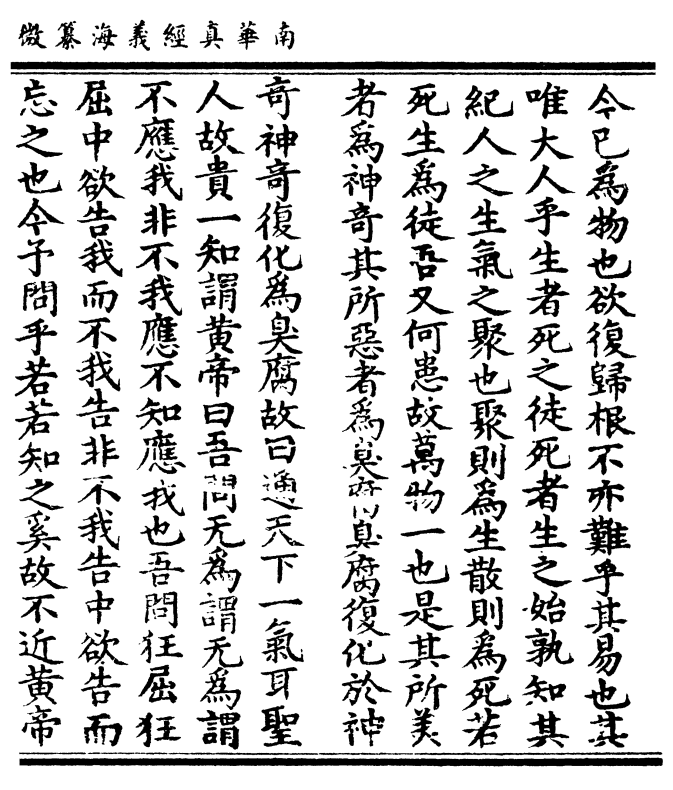 南華真經義海纂微
今已為物也欲復歸根不亦難乎其易也其
唯大人乎生者死之徒死者生之始孰知其
紀人之生氣之聚也聚則為生散則為死若
死生為徒吾又何患故萬物一也是其所美
者為神奇其所惡者為臭腐臭腐復化於神
奇神奇復化為臭腐故曰通天下一氣耳聖
人故貴一知謂黄帝曰吾問无為謂无為謂
不應我非不我應不知應我也吾問狂屈狂
屈中欲告我而不我告非不我告中欲告而
忘之也今予問乎若若知之奚故不近黄帝